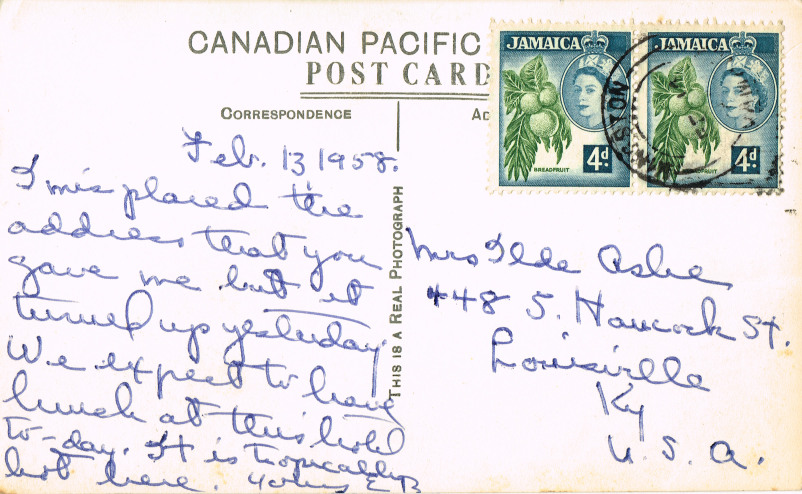 CANADIAN PACIFIC
POST CARD
CORRESPONDENCE
JAMAICA
BREADFRUIT
4d.
JAMAICA
BREADFRUIT
4d.
KINGSTON
THIS IS A REAL PHOTOGRAPH
Feb. 13 1958.
I misplaced the
address that you
gave me but it
turned up yesterday.
We expect to have
lunch at this hotel
to-day. It is tropically
hot here. E B
Mrs Ilde Ashe
448 S. Hancock St.
Louisville
Ky
U. S. A.